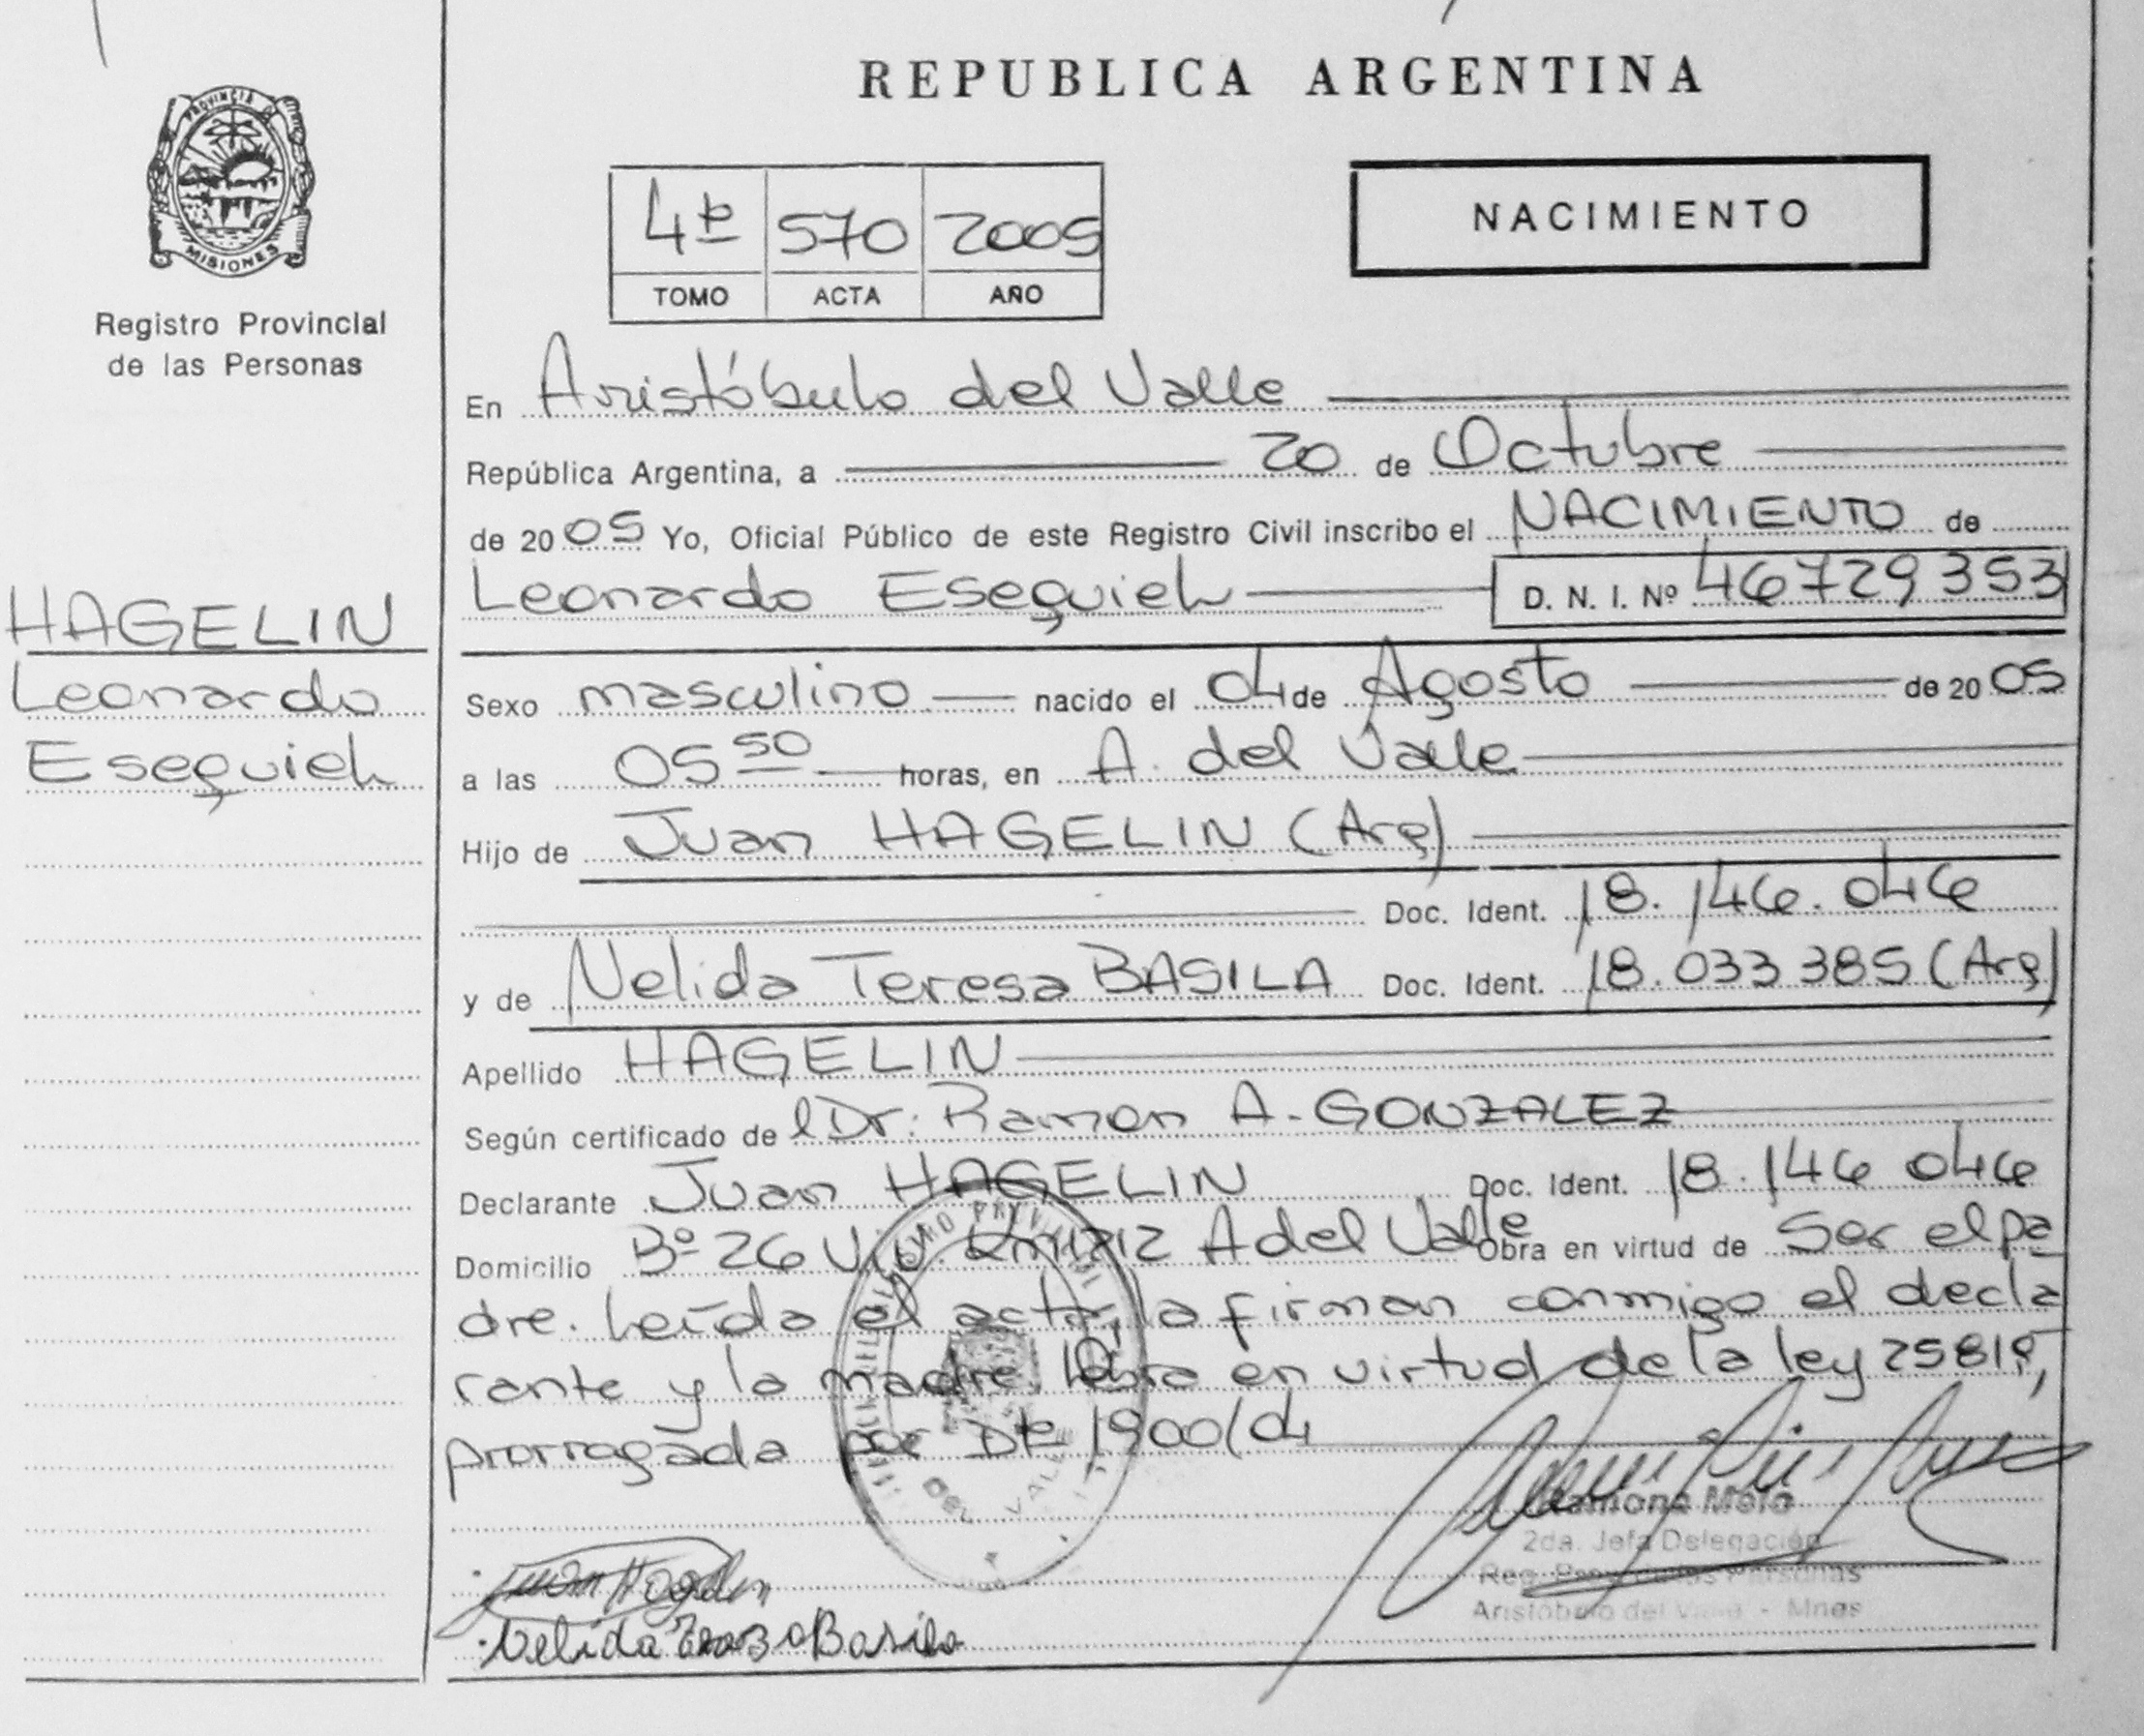 REPUBLICA ARGENTINA
PROVINCIA DE
MISIONES
Registro Provincial
de las Personas
4to 570 2005
TOMO ACTA AÑO
NACIMIENTO
En Aristóbulo del Valle
República Argentina, a 20 de Octubre
de 2005 Yo, Oficial Público de este Registro Civil inscribo el NACIMIENTO de
Leonardo Esequiel D. N. I. Nº 46729353
HAGELIN
Leonardo
Esequiel
Sexo masculino nacido el 04 de Agosto de 2005
a las 05 50 horas, en A. del Valle
Hijo de Juan HAGELIN (Arg)
Doc. Ident. 18.146.046
y de Nelida Teresa BASILA Doc. Ident. 18.033385 (Arg)
Apellido HAGELIN
Según certificado del Dr: Ramon A. GONZALEZ
Declarante Juan HAGELIN Doc. Ident. 18.146 046
Domicilio Bº 26 Viv. A del Valle Obra en virtud de Ser el pa
dre. Leída el acta, la firman conmigo el decla
rante y la madre. en virtud de la ley 25819,
prorrogada por Dto 1900/04
DEL VALLE
Ramona Melo
2da. Jefa Delegación
Reg. Prov. de las Personas
Aristóbulo del Valle - Mnes
Juan Hagelin
Nelida Basila